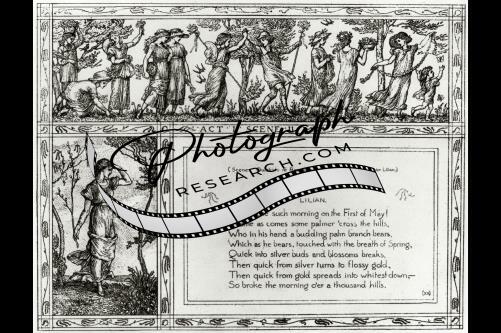 ACT I SCENE II
Photograph
RESEARCH.COM
(Scene
Lilian.)
LILIAN.
such morning on the First of May!
as comes some palmer 'cross the hills,
Who in his hand a budding palm branch bears,
Which as he bears, touched with the breath of Spring,
Quick into silver buds and blossoms breaks,
Then quick from silver turns to flossy gold,
Then quick from gold spreads into whitest down;—
So broke the morning o'er a thousand hills.